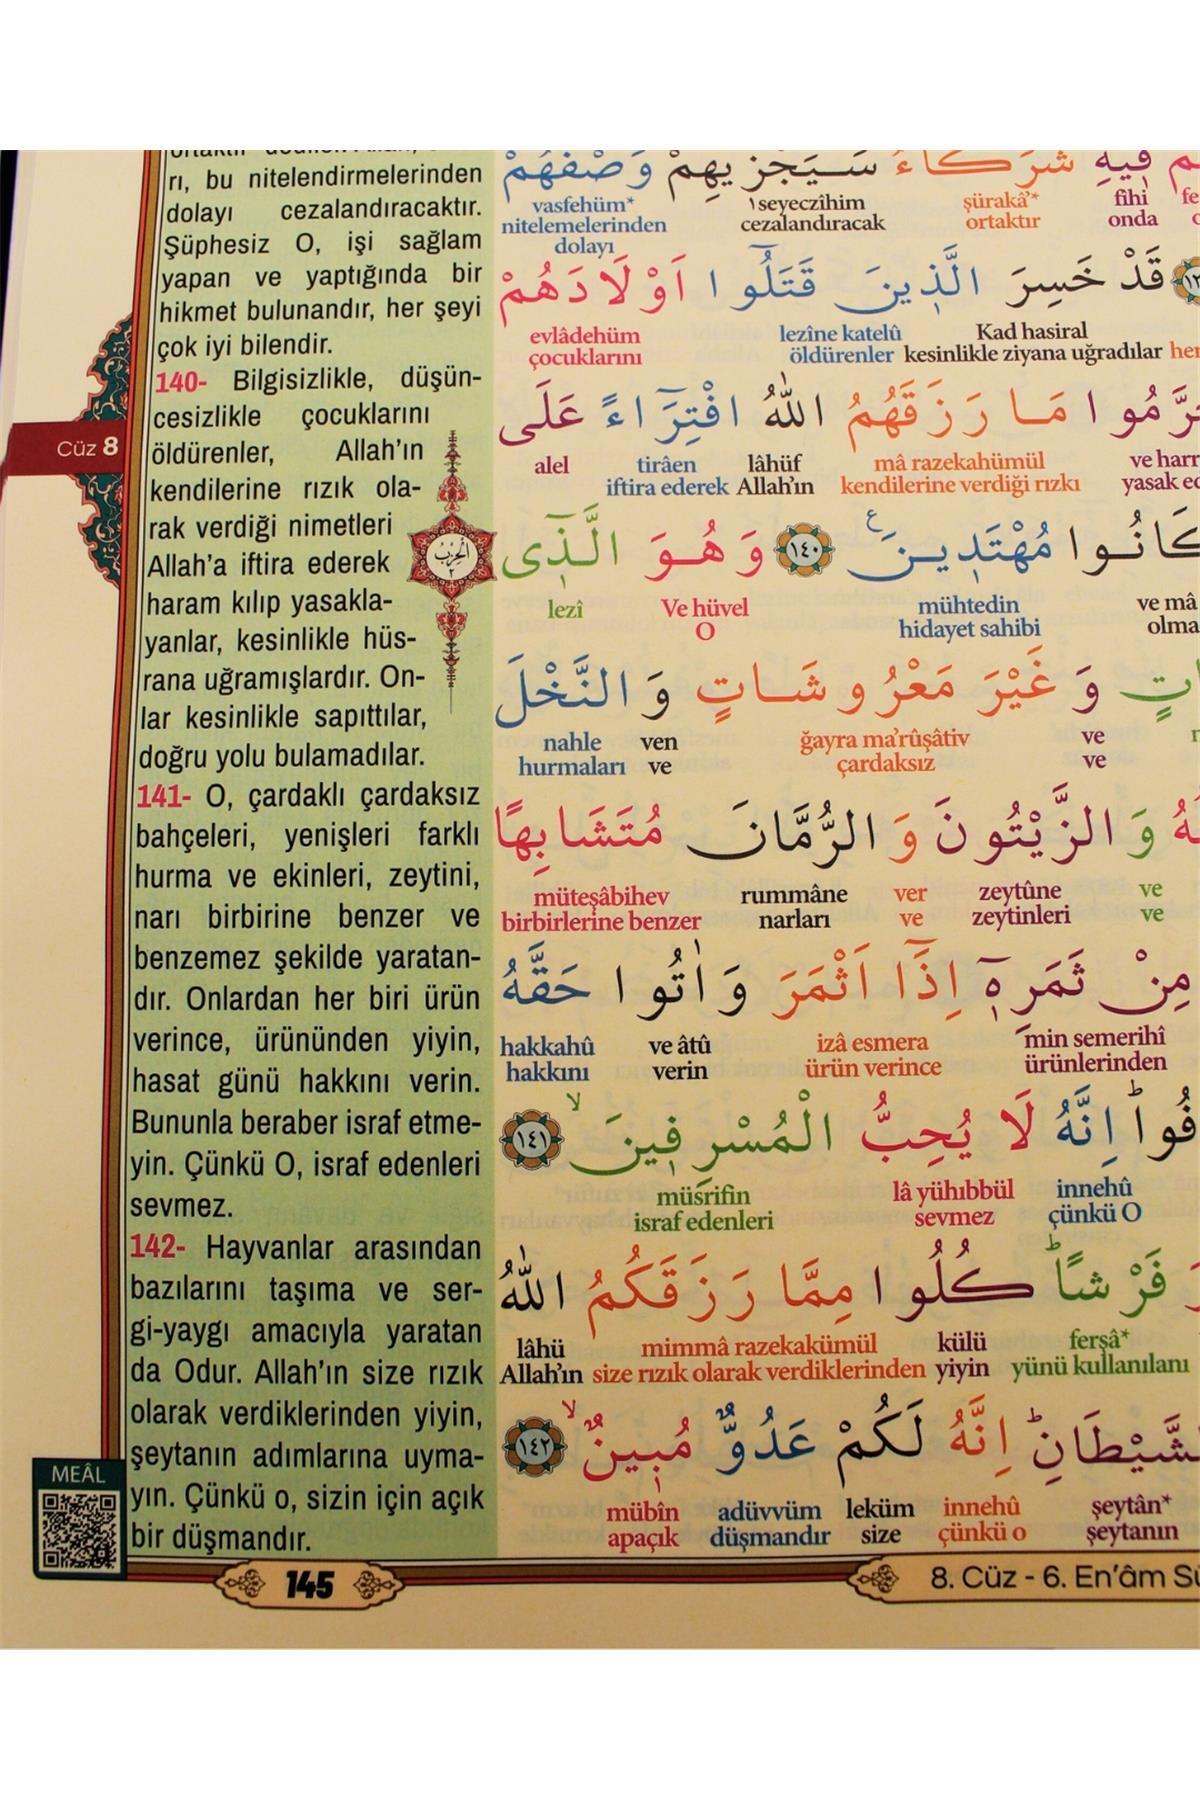 rı, bu nitelendirmelerinden
dolayı cezalandıracaktır.
Şüphesiz O, işi sağlam
yapan ve yaptığında bir
hikmet bulunandır, her şeyi
çok iyi bilendir.
140- Bilgisizlikle, düşün-
cesizlikle çocuklarını
öldürenler, Allah'ın
kendilerine rızık ola-
rak verdiği nimetleri
Allah'a iftira ederek
haram kılıp yasakla-
yanlar, kesinlikle hüs-
rana uğramışlardır. On-
lar kesinlikle sapıttılar,
doğru yolu bulamadılar.
141- O, çardaklı çardaksız
bahçeleri, yenişleri farklı
hurma ve ekinleri, zeytini,
narı birbirine benzer ve
benzemez şekilde yaratan-
dır. Onlardan her biri ürün
verince, ürününden yiyin,
hasat günü hakkını verin.
Bununla beraber israf etme-
yin. Çünkü O, israf edenleri
sevmez.
142- Hayvanlar arasından
bazılarını taşıma ve ser-
gi-yaygı amacıyla yaratan
da Odur. Allah'ın size rızık
olarak verdiklerinden yiyin,
şeytanın adımlarına uyma-
yın. Çünkü o, sizin için açık
bir düşmandır.
Cüz 8
الحزب ٢
MEÂL
فِيهِ شُرَكَٓاءُ سَيَجْزِيهِمْ وَصْفَهُمْ
vasfehüm* seyeczîhim şürakâ'* fîhi
nitelemelerinden cezalandıracak ortaktır onda
dolayı
قَدْ خَسِرَ الَّذِينَ قَتَلُٓوا اَوْلَادَهُمْ
evlâdehüm lezîne katelû Kad hasiral
çocuklarını öldürenler kesinlikle ziyana uğradılar
مَا رَزَقَهُمُ اللّٰهُ افْتِرَٓاءً عَلَى
alel tirâen lâhüf mâ razekahümül ve harr
iftira ederek Allah'ın kendilerine verdiği rızkı yasak
كَانُوا مُهْتَدِينَ ع ١٤٠ وَهُوَ الَّذِٓى
lezî Ve hüvel mühtedin ve mâ
O hidayet sahibi olma
وَ غَيْرَ مَعْرُوشَاتٍ وَ النَّخْلَ
nahle ven ğayra ma'rûşâtiv ve
hurmaları ve çardaksız ve
وَ الزَّيْتُونَ وَ الرُّمَّانَ مُتَشَابِهًا
müteşâbihev rummâne ver zeytûne ve
birbirlerine benzer narları ve zeytinleri ve
مِنْ ثَمَرِهٖٓ اِذَٓا اَثْمَرَ وَاٰتُوا حَقَّهُ
hakkahû ve âtû izâ esmera min semerihî
hakkını verin ürün verince ürünlerinden
فُوا اِنَّهُ لَا يُحِبُّ الْمُسْرِفِينَ لا ١٤١
müsrifin lâ yühıbbül innehû
israf edenleri sevmez çünkü O
فَرْشًا كُلُوا مِمَّا رَزَقَكُمُ اللّٰهُ
lâhü mimmâ razekakümül külü ferşâ*
Allah'ın size rızık olarak verdiklerinden yiyin yünü kullanılanı
الشَّيْطَانِ اِنَّهُ لَكُمْ عَدُوٌّ مُبِينٌ لا ١٤٢
mübîn adüvvüm leküm innehû şeytân*
apaçık düşmandır size çünkü o şeytanın
145
8. Cüz - 6. En'âm Sû